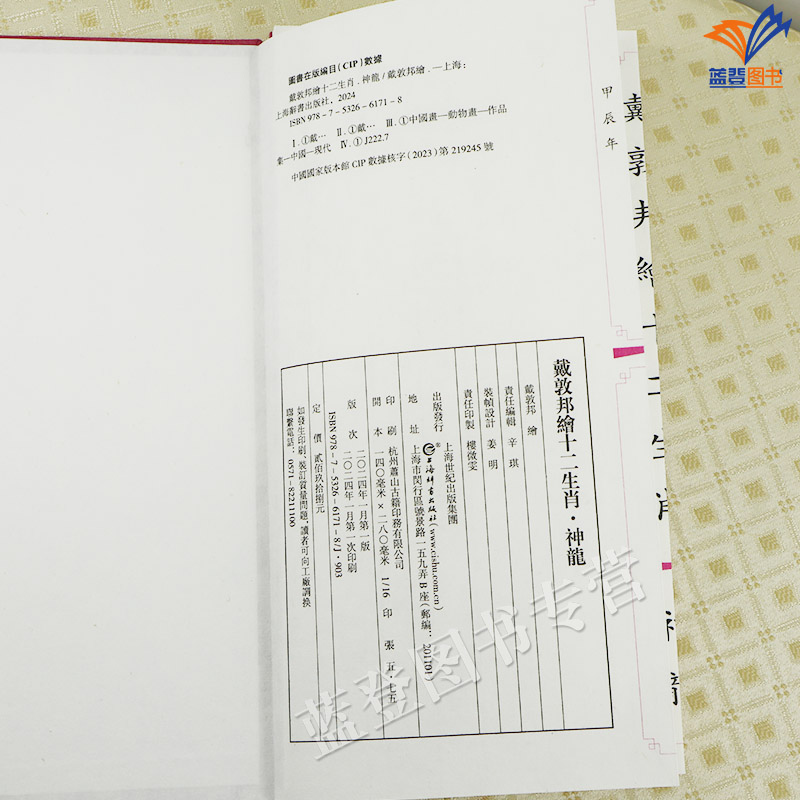 蓝登图书
圖書在版編目（CIP）數據
戴敦邦繪十二生肖．神龍 / 戴敦邦繪．—上海：
上海辭書出版社，2024
ISBN 978－7－5326－6171－8
Ⅰ.①戴… Ⅱ.①戴… Ⅲ.①中國畫—動物畫—作品
集—中國—現代 Ⅳ.①J222.7
中國國家版本館 CIP 數據核字（2023）第 219245 號
甲辰年
戴敦邦繪十二生肖
戴敦邦繪十二生肖·神龍
戴敦邦 繪
責任編輯 辛琪
裝幀設計 姜明
責任印製 樓微雯
出版發行 上海世紀出版集團
上海辭書出版社（www.cishu.com.cn）
地 址 上海市閔行區號景路一五九弄B座（郵編：201101）
印 刷 杭州蕭山古籍印務有限公司
開 本 一四〇毫米×二八〇毫米 1/16 印 張 五·七五
版 次 二〇二四年一月第一版
二〇二四年一月第一次印刷
ISBN 978-7-5326-6171-8/J·903
定 價 貳佰玖拾捌元
如發生印刷、裝訂質量問題，讀者可向工廠調換
聯繫電話：0571-82211100
蓝登图书专营